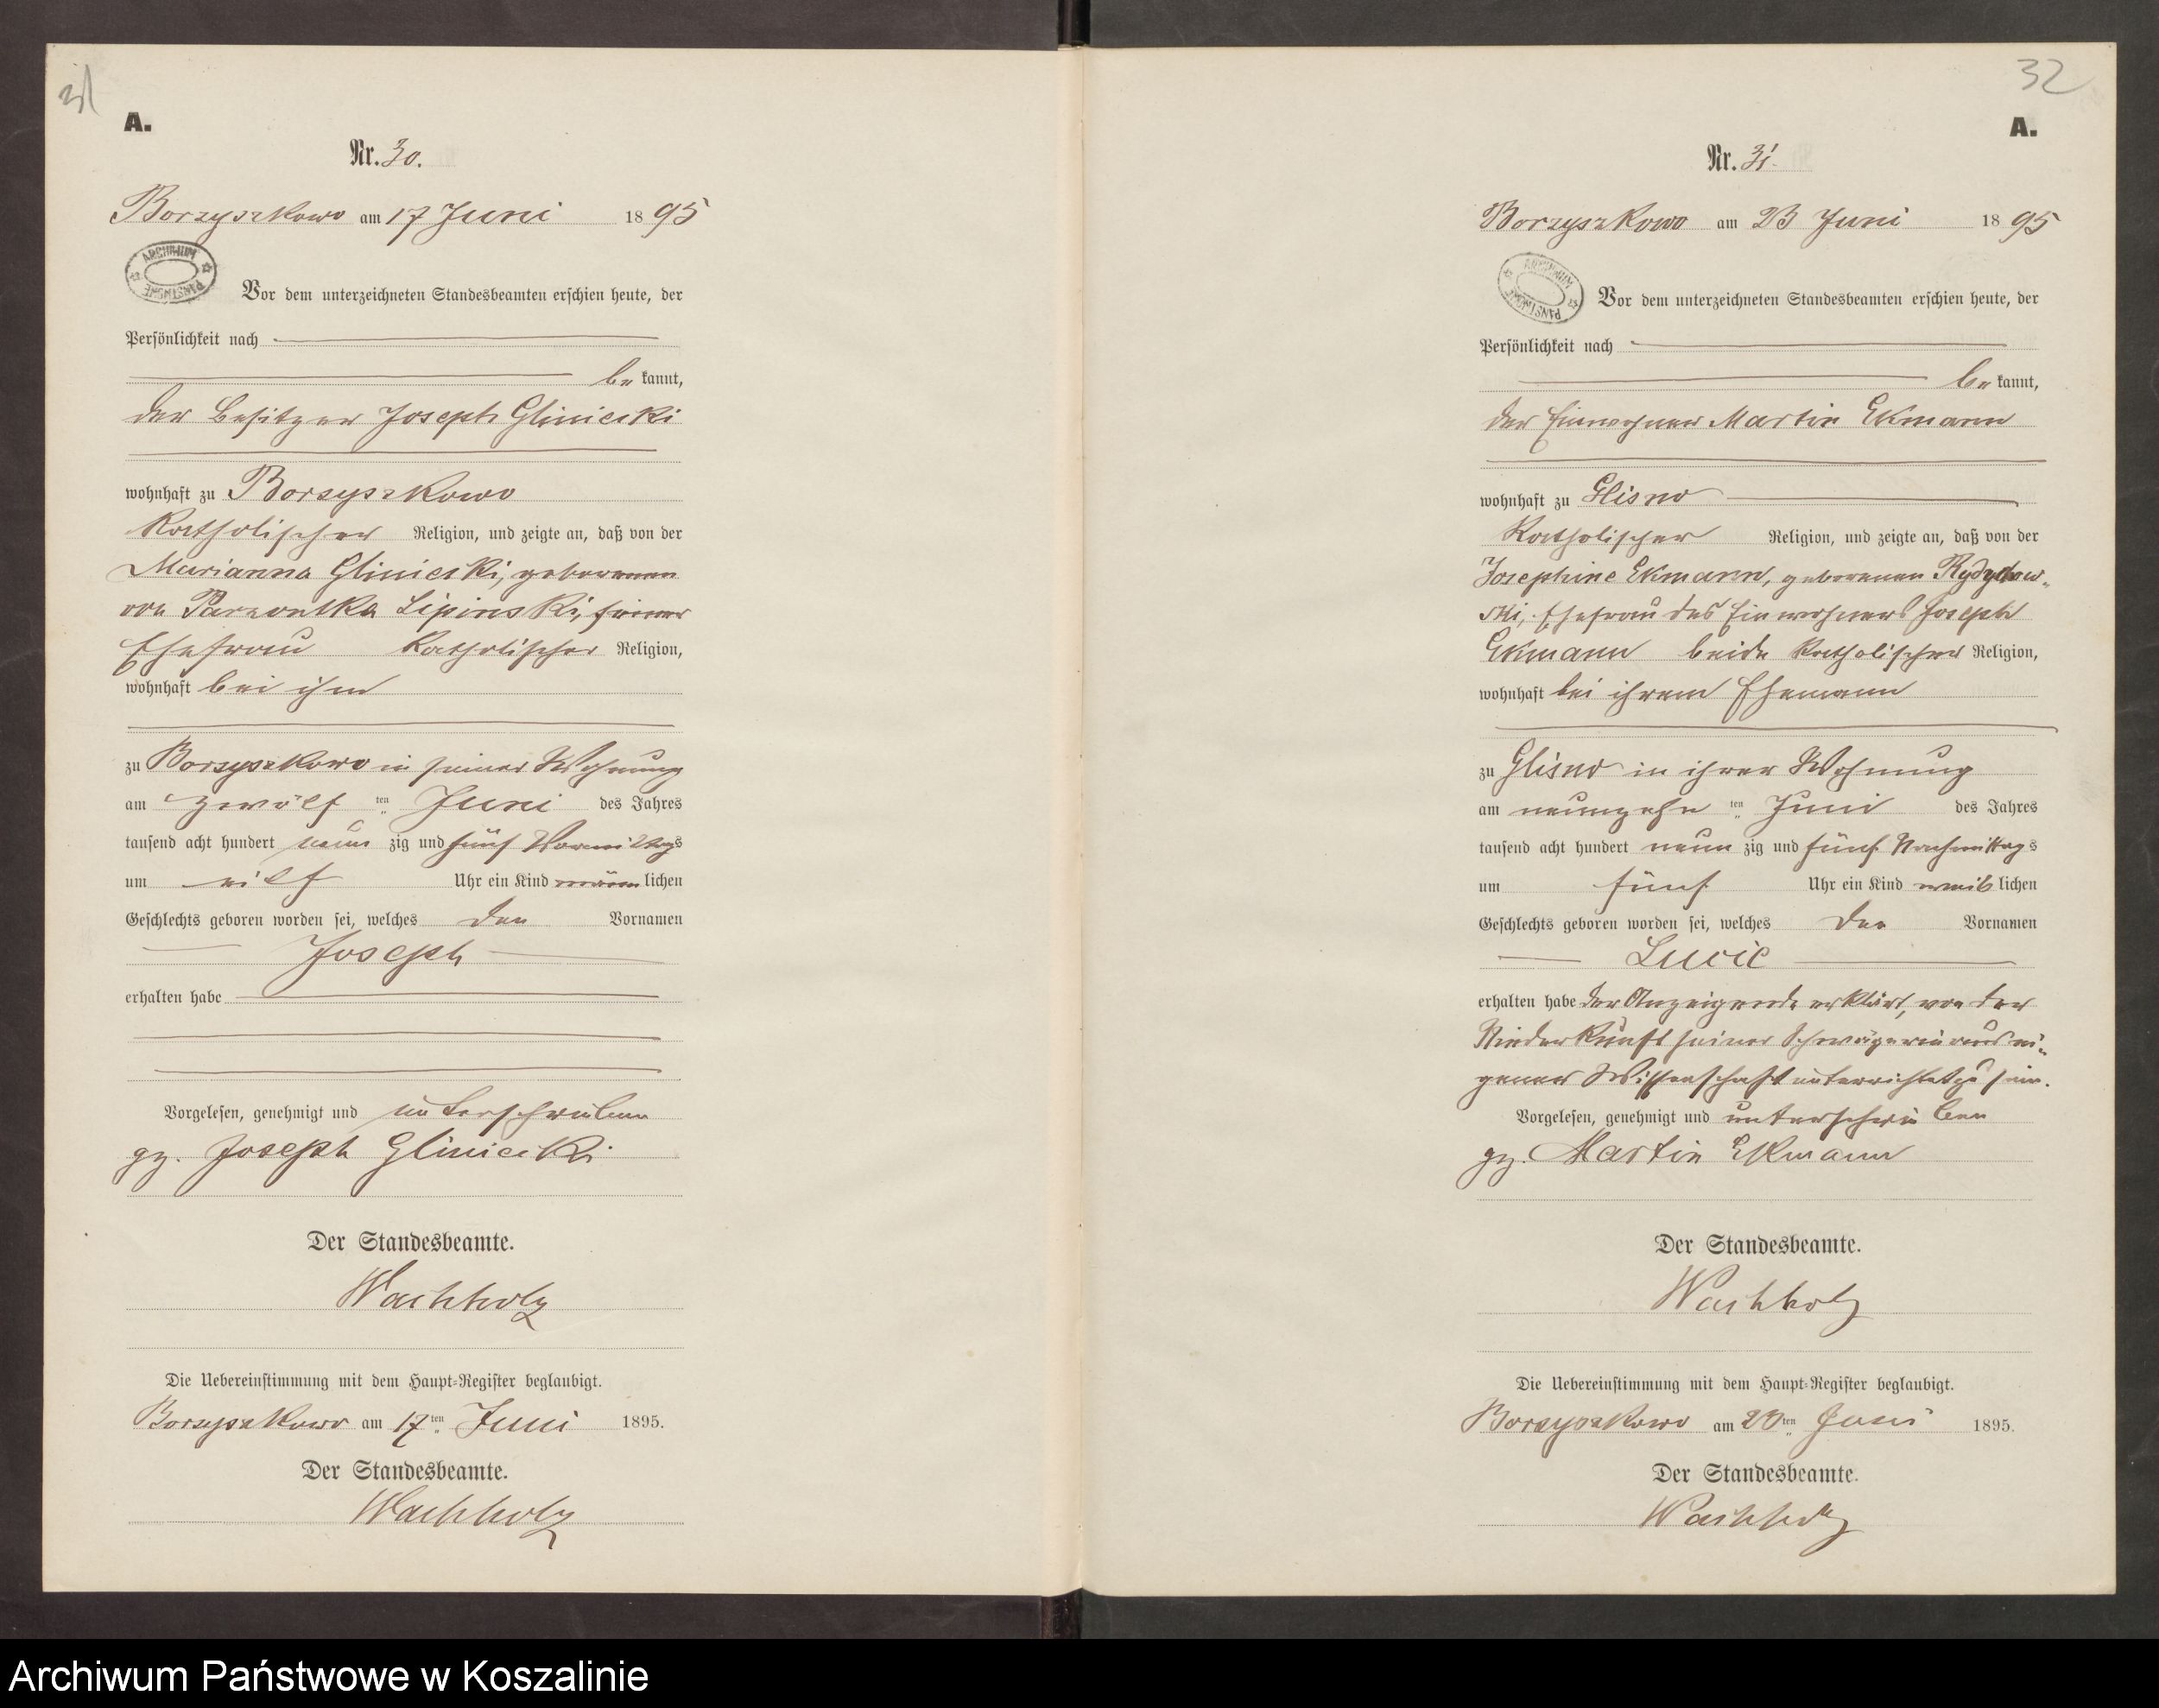 31
A.
Nr. 30.
Borzyszkowo am 17 Juni 1895
ARCHIWUM PAŃSTWOWE
Vor dem unterzeichneten Standesbeamten erschien heute, der
Persönlichkeit nach
bekannt,
der Besitzer Joseph Gliniecki
wohnhaft zu Borzyszkowo
katholischer Religion, und zeigte an, daß von der
Marianna Gliniecki, geborenen
von Parzontka Lipinski, seiner
Ehefrau katholischer Religion,
wohnhaft bei ihm
zu Borzyszkowo in seiner Wohnung
am zwölften Juni des Jahres
tausend acht hundert neunzig und fünf Vormittags
um eilf Uhr ein Kind männlichen
Geschlechts geboren worden sei, welches den Vornamen
Joseph
erhalten habe
Vorgelesen, genehmigt und unterschrieben
gz. Joseph Gliniecki
Der Standesbeamte.
Wachholz
Die Uebereinstimmung mit dem Haupt-Register beglaubigt.
Borzyszkowo am 17ten Juni 1895.
Der Standesbeamte.
Wachholz
32
A.
Nr. 31.
Borzyszkowo am 23 Juni 1895
ARCHIWUM PAŃSTWOWE
Vor dem unterzeichneten Standesbeamten erschien heute, der
Persönlichkeit nach
bekannt,
der Einwohner Martin Ekmann
wohnhaft zu Glisno
katholischer Religion, und zeigte an, daß von der
Josephine Ekmann, geborenen
ski, Ehefrau des Einwohners Joseph
Ekmann beide katholischer Religion,
wohnhaft bei ihrem Ehemann
zu Glisno in ihrer Wohnung
am neunzehnten Juni des Jahres
tausend acht hundert neunzig und fünf Nachmittags
um fünf Uhr ein Kind weiblichen
Geschlechts geboren worden sei, welches den Vornamen
Lucie
erhalten habe der Anzeigende erklärt, von der
Niederkunft seiner Schwägerin aus ei-
gener Wissenschaft unterrichtet zu sein.
Vorgelesen, genehmigt und unterschrieben
gz. Martin Ekmann
Der Standesbeamte.
Wachholz
Die Uebereinstimmung mit dem Haupt-Register beglaubigt.
Borzyszkowo am ten Juni 1895.
Der Standesbeamte.
Wachholz
Archiwum Państwowe w Koszalinie